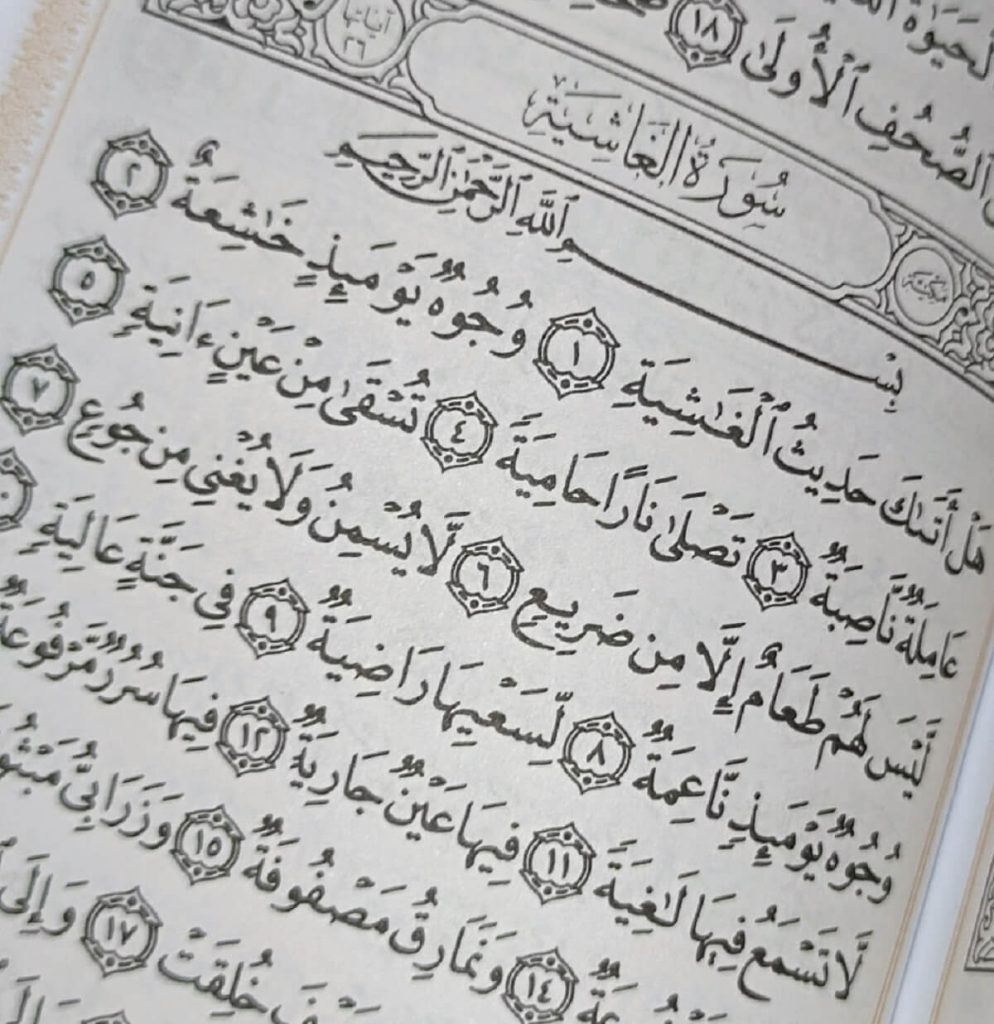 ٱلصُّحُفِ ٱلْأُولَىٰ ١٨
سُورَةُ الْغَاشِيَةِ
آيَاتُهَا ٢٦
مَكِّيَّة
بِسْمِ ٱللَّهِ ٱلرَّحْمَٰنِ ٱلرَّحِيمِ
هَلْ أَتَىٰكَ حَدِيثُ ٱلْغَٰشِيَةِ ١ وُجُوهٌ يَوْمَئِذٍ خَٰشِعَةٌ ٢
عَامِلَةٌ نَّاصِبَةٌ ٣ تَصْلَىٰ نَارًا حَامِيَةً ٤ تُسْقَىٰ مِنْ عَيْنٍ ءَانِيَةٍ ٥
لَّيْسَ لَهُمْ طَعَامٌ إِلَّا مِن ضَرِيعٍ ٦ لَّا يُسْمِنُ وَلَا يُغْنِي مِن جُوعٍ ٧
وُجُوهٌ يَوْمَئِذٍ نَّاعِمَةٌ ٨ لِّسَعْيِهَا رَاضِيَةٌ ٩ فِي جَنَّةٍ عَالِيَةٍ
لَّا تَسْمَعُ فِيهَا لَٰغِيَةً ١١ فِيهَا عَيْنٌ جَارِيَةٌ ١٢ فِيهَا سُرُرٌ مَّرْفُوعَةٌ
١٤ وَنَمَارِقُ مَصْفُوفَةٌ ١٥ وَزَرَابِيُّ مَبْثُو
خُلِقَتْ ١٧ وَإِلَى